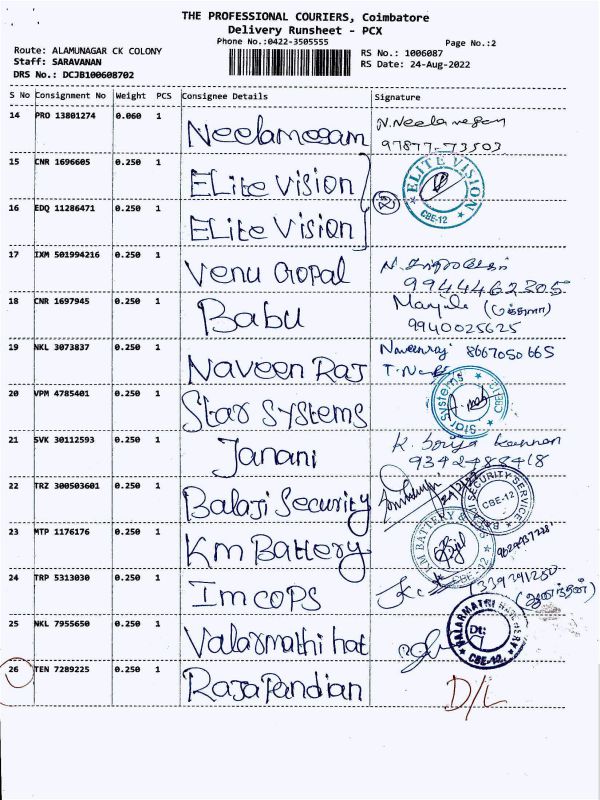 THE PROFESSIONAL COURIERS, Coimbatore
Delivery Runsheet - PCX
Phone No.:0422-3505555
Page No.:2
Route: ALAMUNAGAR CK COLONY
RS No.: 1006087
Staff: SARAVANAN
RS Date: 24-Aug-2022
DRS No.: DCJB100608702
S No Consignment No Weight PCS Consignee Details Signature
14 PRO 13801274 0.060 1 Neelamegam N.Neelamegam
97877-73503
15 CNR 1696605 0.250 1 ELite Vision
ELITE VISION CBE-12
16 EDQ 11286471 0.250 1 ELite Vision
2
17 IXM 501994216 0.250 1 Venu Gopal
9944462305
18 CNR 1697945 0.250 1 Babu
9940025625
19 NKL 3073837 0.250 1 Naveen Raj Naveenraj 8667050665
20 VPM 4785401 0.250 1 Star Systems
Star Systems CBE
21 SVK 30112593 0.250 1 Janani
22 TRZ 300503601 0.250 1 Balaji Security
BALAJI SECURITY SERVICE CBE-12
23 MTP 1176176 0.250 1 Km Battery
KM BATTERY CBE-12
24 TRP 5313030 0.250 1 Imcops
25 NKL 7955650 0.250 1 Valarmathi hat
CBE-12
26 TEN 7289225 0.250 1 Raja Pandian D/L